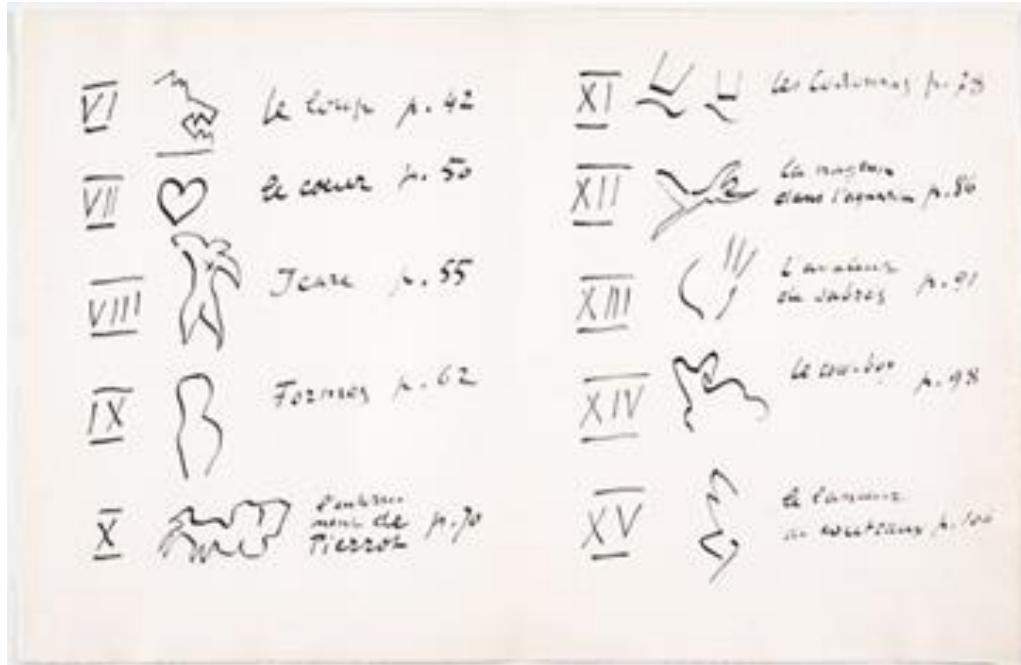 VI le loup p. 42
VII le cœur p. 50
VIII Icare p. 55
IX Formes p. 62
X l'enterre-
ment de
Pierrot p. 70
XI les Codomas p. 78
XII la nageuse
dans l'aquarium p. 86
XIII l'avaleur
de sabres p. 91
XIV le cow-boy p. 98
XV le lanceur
de couteaux